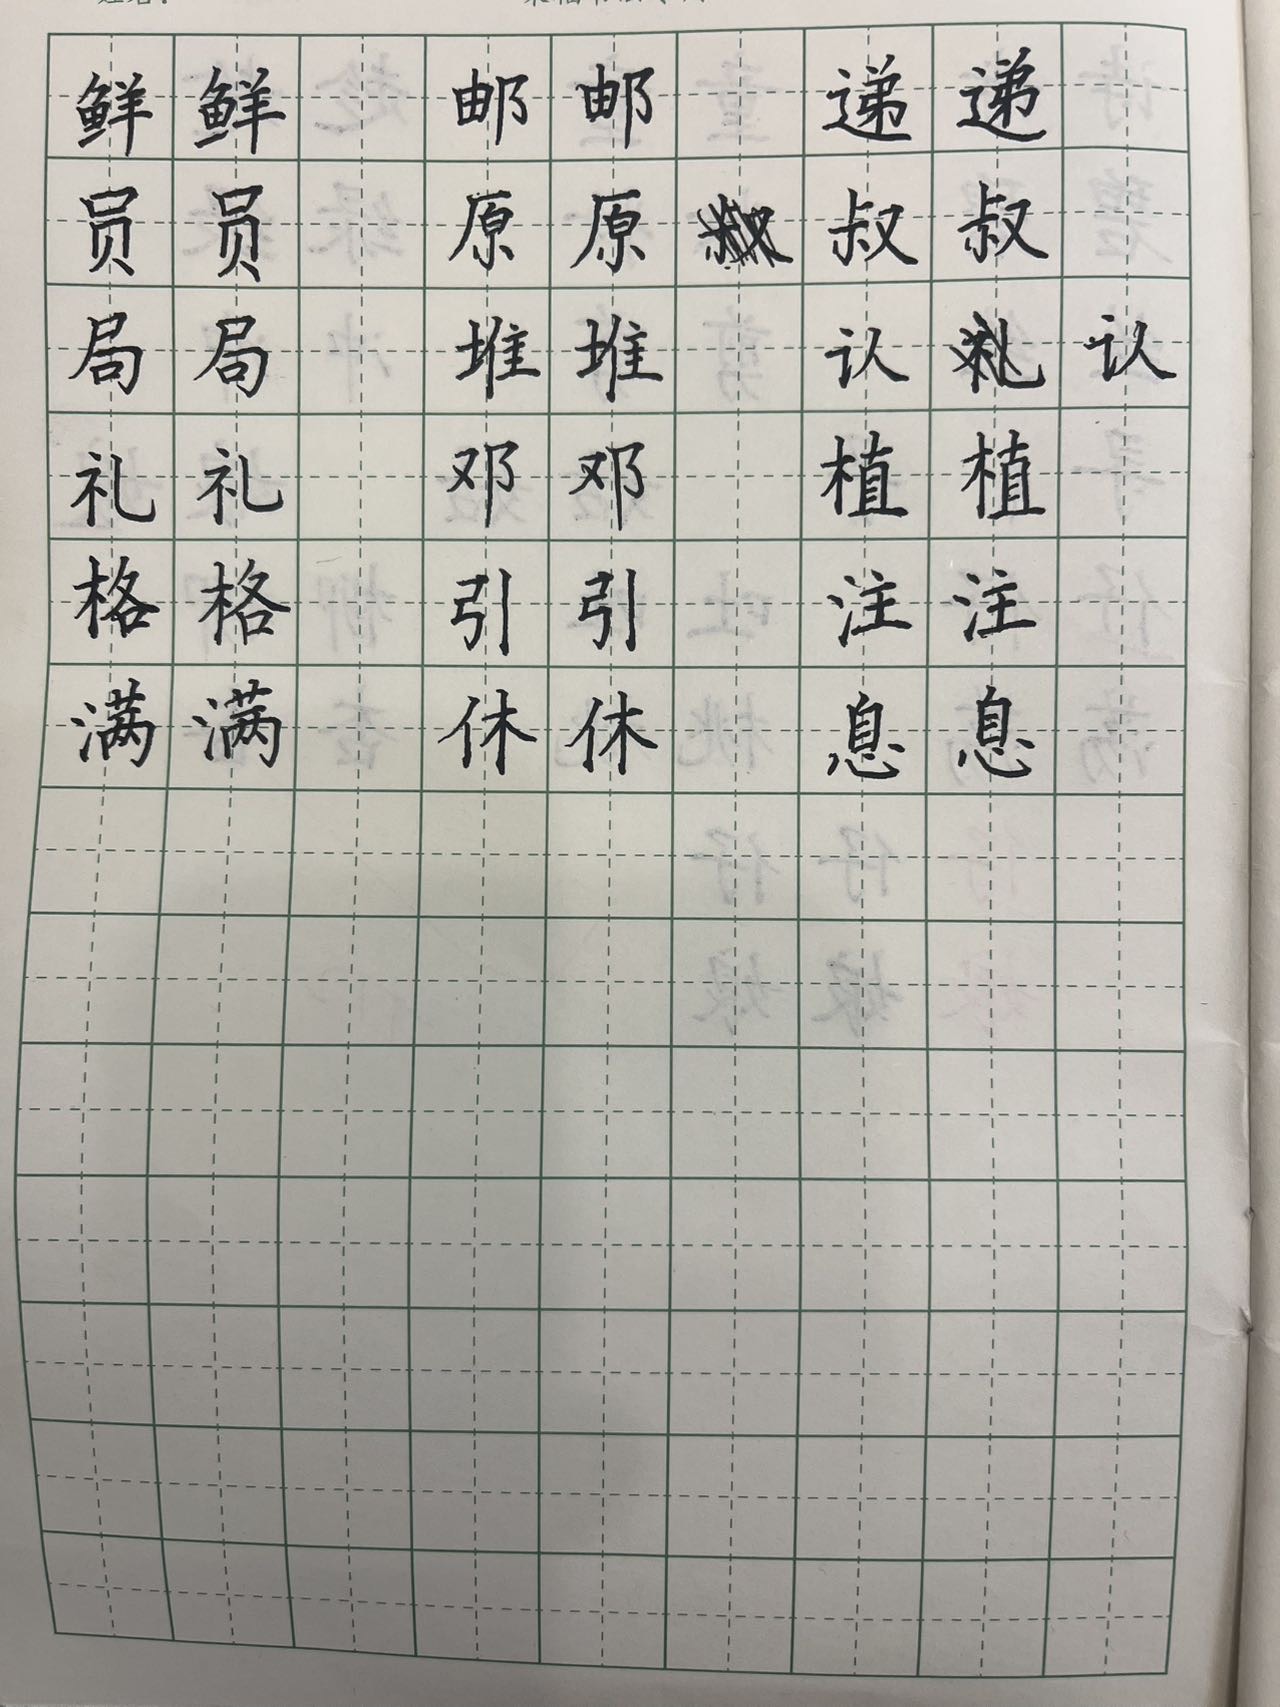 鲜 鲜 邮 邮 递 递
员 员 原 原 叔 叔
局 局 堆 堆 认 认
礼 礼 邓 邓 植 植
格 格 引 引 注 注
满 满 休 休 息 息